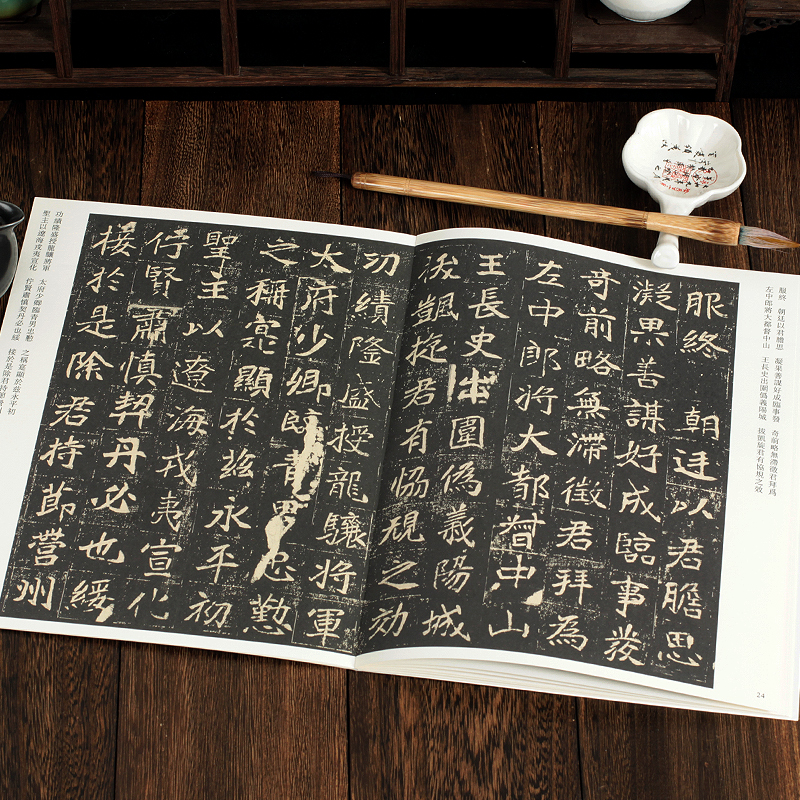 服終 朝廷以君膽思 凝果善謀好成臨事發 奇前略無滯徵君拜爲
左中郎將大都督中山 王長史出圍僞義陽城 拔凱旋君有協規之效
服終 朝廷以君膽思
凝果善謀好成臨事發
奇前略無滯徵君拜為
左中郎將大都督中山
王長史出圍偽義陽城
拔凱旋君有協規之効
24
功績隆盛授龍驤將軍
太府少卿臨青男忠懃
之稱寔顯於茲永平初
聖主以遼海戎夷宣化
佇賢肅慎契丹必也綏
接於是除君持節營州
功績隆盛授龍驤將軍 太府少卿臨青男忠勤 之稱寔顯於茲永平初
聖主以遼海戎夷宣化 佇賢肅慎契丹必也綏 接於是除君持節營州